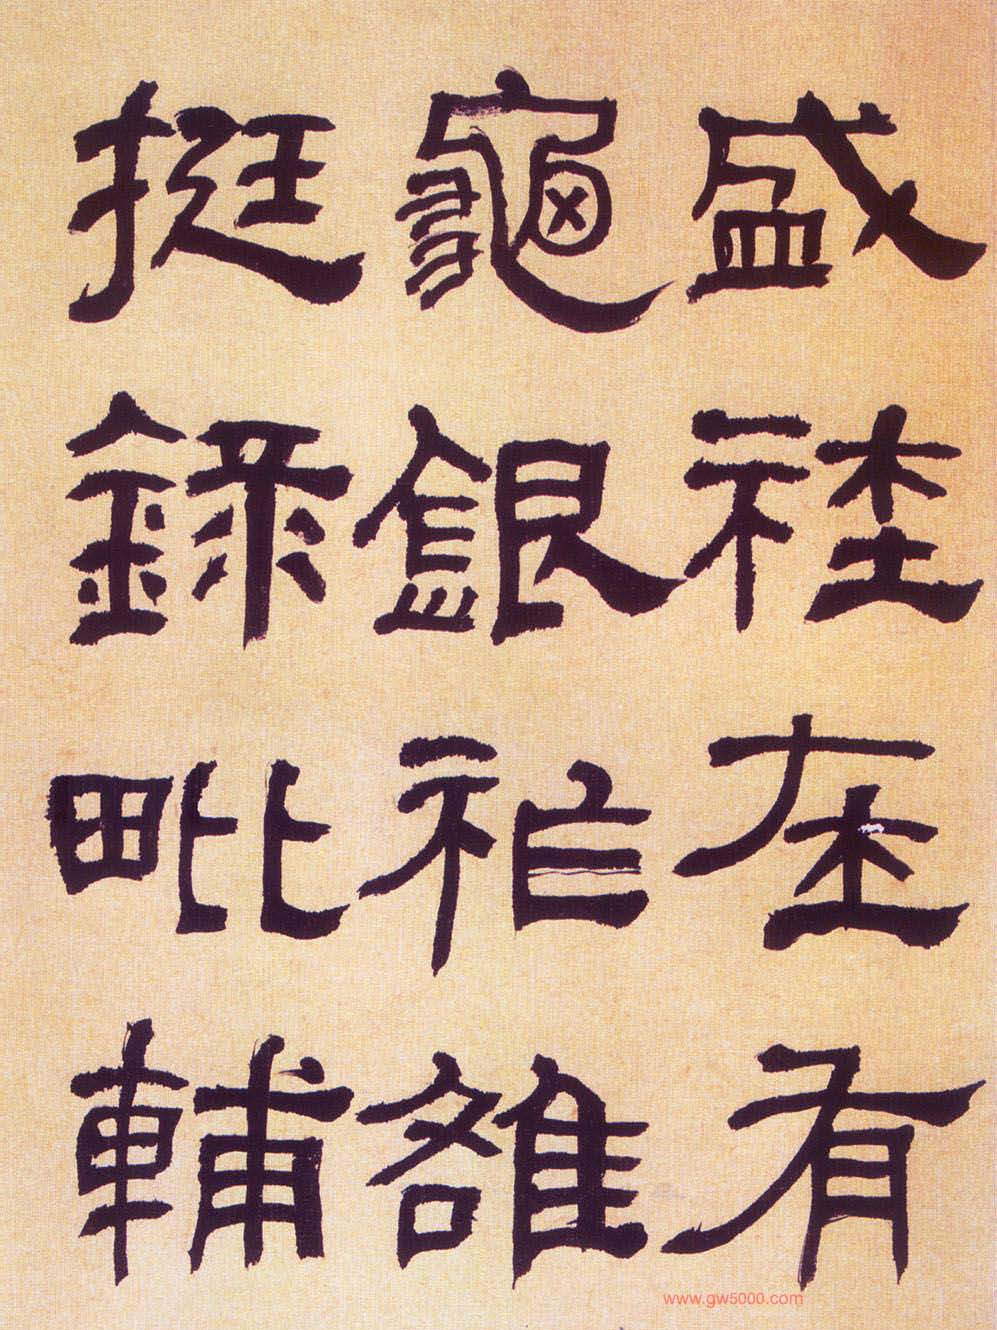 盛社在有
龜銀祚雒
挺錄毗輔
www.gw5000.com